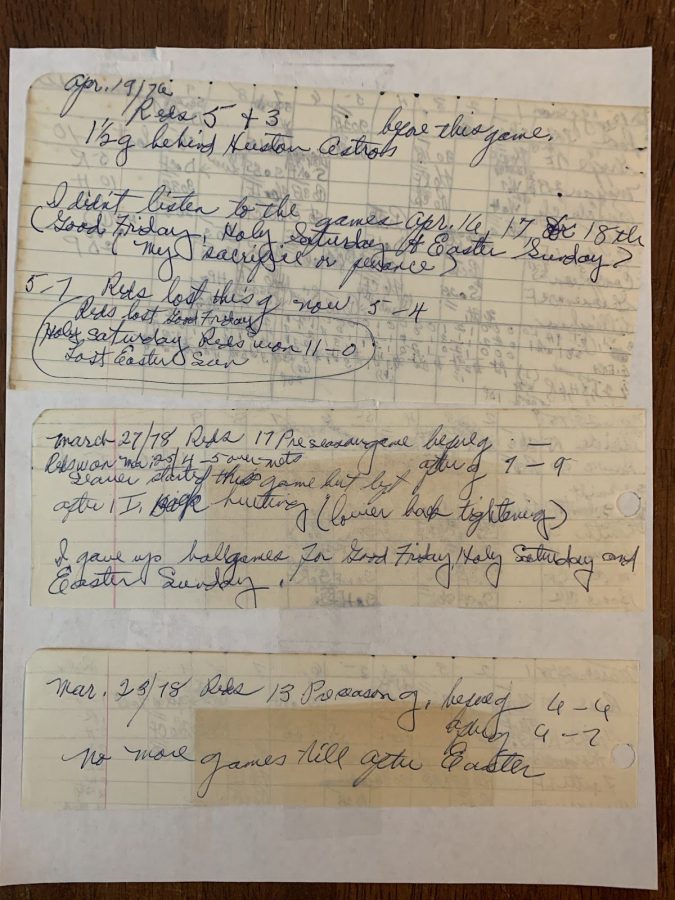 Apr. 19/76
Reds 5 + 3 before this game.
1½ g behind Huston Astrobs
I didn't listen to the games Apr. 16, 17 18th
(Good Friday, Holy Saturday & Easter Sunday)
(My sacrifice or penance)
5-7 Reds lost this g now 5-4
Reds lost Good Friday
Holy Saturday Reds won 11-0
Lost Easter Sun
march 27/78 Reds 17 Preseason game before g -
Reds won Mar. 25/ 4-5 over mets after g 9-9
Seaver started this game but left
after 1 I, back hurting (lower back tightening)
I gave up ballgames for Good Friday, Holy Saturday and
Easter Sunday.
Mar. 23/78 Reds 13 Preseason g, before g 6-6
after g 6-7
No more games till after Easter